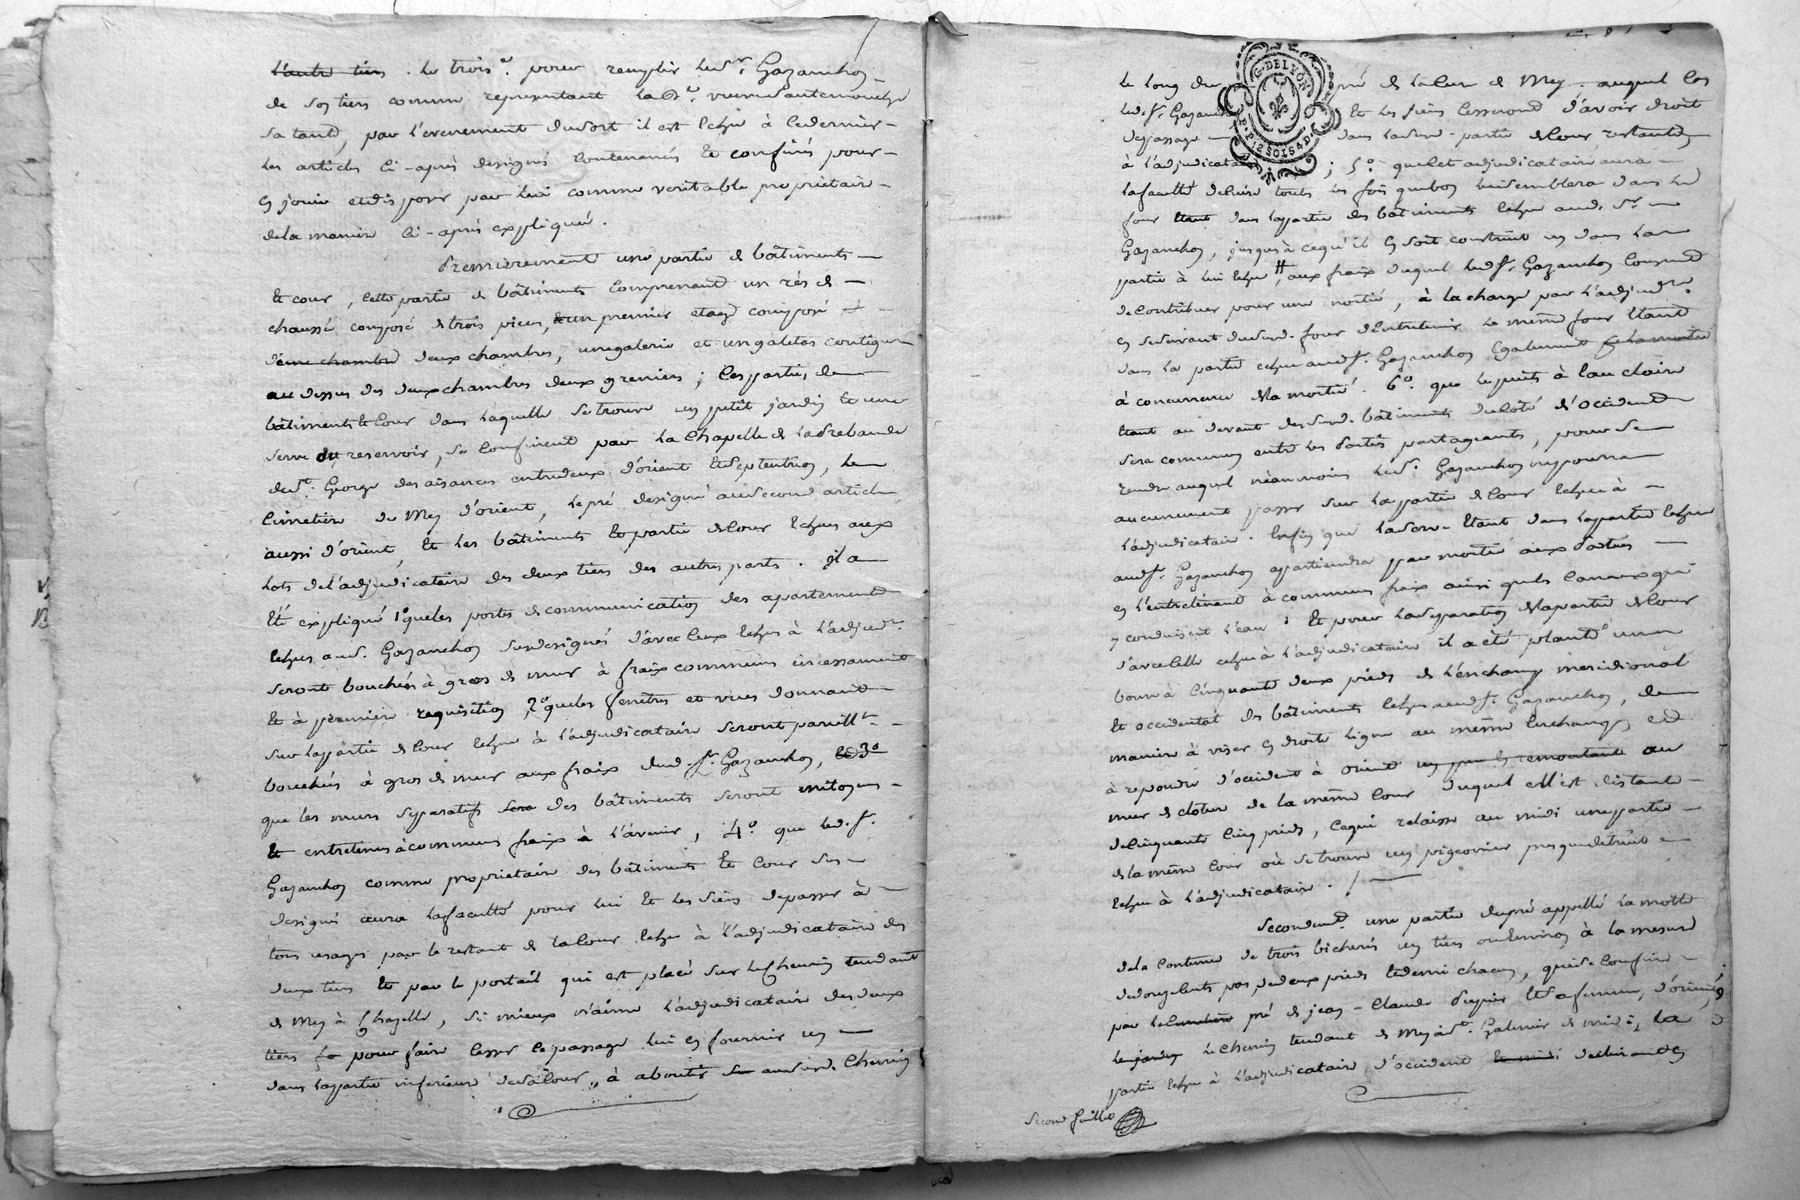 l'autre tiers. Le trois.e pour remplir led. Sr. Gazanchon
de son tiers comme representant la D.e
sa tante, par l'evenement du sort il est echu à ce dernier
les articles ci-après designés contenancés et confinés pour
en jouir et disposer par lui comme veritable proprietaire
de la maniere ci-après expliqué.
Premierement une partie de bâtiments
et cour, cette partie de bâtiments comprenant un rés de
chaussé composé de trois pieces, un premier etage composé
d'une chambre deux chambres, une galerie et un galetas contigu
au dessus des deux chambres deux greniers; les parties de
bâtiments et cour dans laquelle se trouve un petit jardin et une
serve ou reservoir, se confinent par la Chapelle de la Prebende
de St. George des aisances entredeux d'orient et septentrion, le
cimetière de Mey d'orient, le pré designé au second article
aussi d'orient, et les bâtiments et partie de cour echus aux
lots de l'adjudicataire des deux tiers des autres parts. il a
été expliqué 1.o que les portes de communication des apartements
echus aud. Gazanchon susdesignés d'avec ceux echus à l'adjud.re
seront bouchées à gros de mur à fraix communs incessament
et à premiere requisition, 2.o que les fenetres et vues donnant
sur la partie de cour echue à l'adjudicataire seront pareillt.
bouchées à gros de mur aux fraix dud. Sr. Gazanchon, 3.o
que les murs separatifs des bâtiments seront mitoyens
et entretenus à communs fraix à l'avenir, 4.o que led. Sr.
Gazanchon comme proprietaire des bâtiments et cour sus
designé aura la faculté pour lui et les siens de passer à
tous usages par le restant de la cour echue à l'adjudicataire des
deux tiers et par le portail qui est placé sur le chemin tendant
de Mey à Chazelle, si mieux n'aime l'adjudicataire des deux
tiers pour faire cesser ce passage lui en fournir un
dans la partie inferieure de sa cour, à aboutir au susd. chemin
Le long du pré de la Cure de Mey. auquel cas
led. Sr. Gazanchon et les siens cesseront d'avoir droit
de passage dans la susd. partie de cour restante
à l'adjudicataire; 5.o que cet adjudicataire aura
la faculté de cuire touts les fois que bon lui semblera dans le
four etant dans la partie des bâtiments echue aud. Sr.
Gazanchon, jusques à ce qu'il en soit construit un dans la
partie à lui echue, aux fraix duquel led. Sr. Gazanchon
de contribuer pour une moitié, à la charge par l'adjud.re
en se servant dususd. four d'entretenir le même four etant
dans la partie echue aud. Sr. Gazanchon egalement
à concurrence de la moitié. 6.o que le puits à eau claire
etant au devant desusd. bâtiments du coté d'occident
sera commun entre les parties partageants, pour se
rendre auquel néanmoins led. Sr. Gazanchon ne pourra
aucunement passer sur la partie de cour echue à
l'adjudicataire. Enfin que la serve etant dans la partie echue
aud. Sr. Gazanchon apartiendra par moitié aux parties
en l'entretenant à communs fraix ainsi que les canaux qui
y conduisent l'eau; et pour la separation de la partie de cour
d'avec celle echue à l'adjudicataire il a été planté une
borne à cinquante deux pieds de l'enchang meridional
et occidental des bâtiments echus aud. Sr. Gazanchon, de
maniere à viser en droite ligne au même enchang, et
à repondre d'occident à orient au
mur de cloture de la même cour duquel elle est distante
de cinquante cinq pieds, ce qui relaisse au midi une partie
de la même cour où se trouve un pigeonier presque detruit
echue à l'adjudicataire.
Secondemt. une partie du pré appellé la motte
de la contenue de trois bicherées un tiers ou environ à la mesure
de douze cents pas de deux pieds et demi chacun, qui se confine
par pré de Jean-Claude et sa femme, d'orient
le chemin tendant de Mey à St. Galmier de midi, la
partie echue à l'adjudicataire d'occident
Second feuillet
G. DE LYON
P. P. 12 SOLS 4 D.